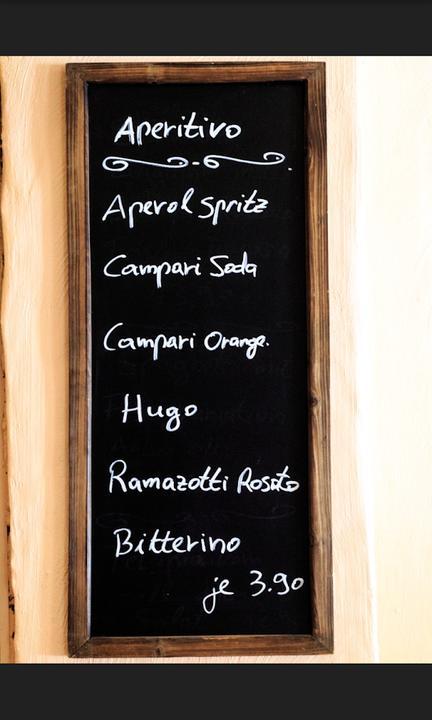 Aperitivo
Aperol Spritz
Campari Soda
Campari Orange.
Hugo
Ramazotti Rosato
Bitterino
je 3.90